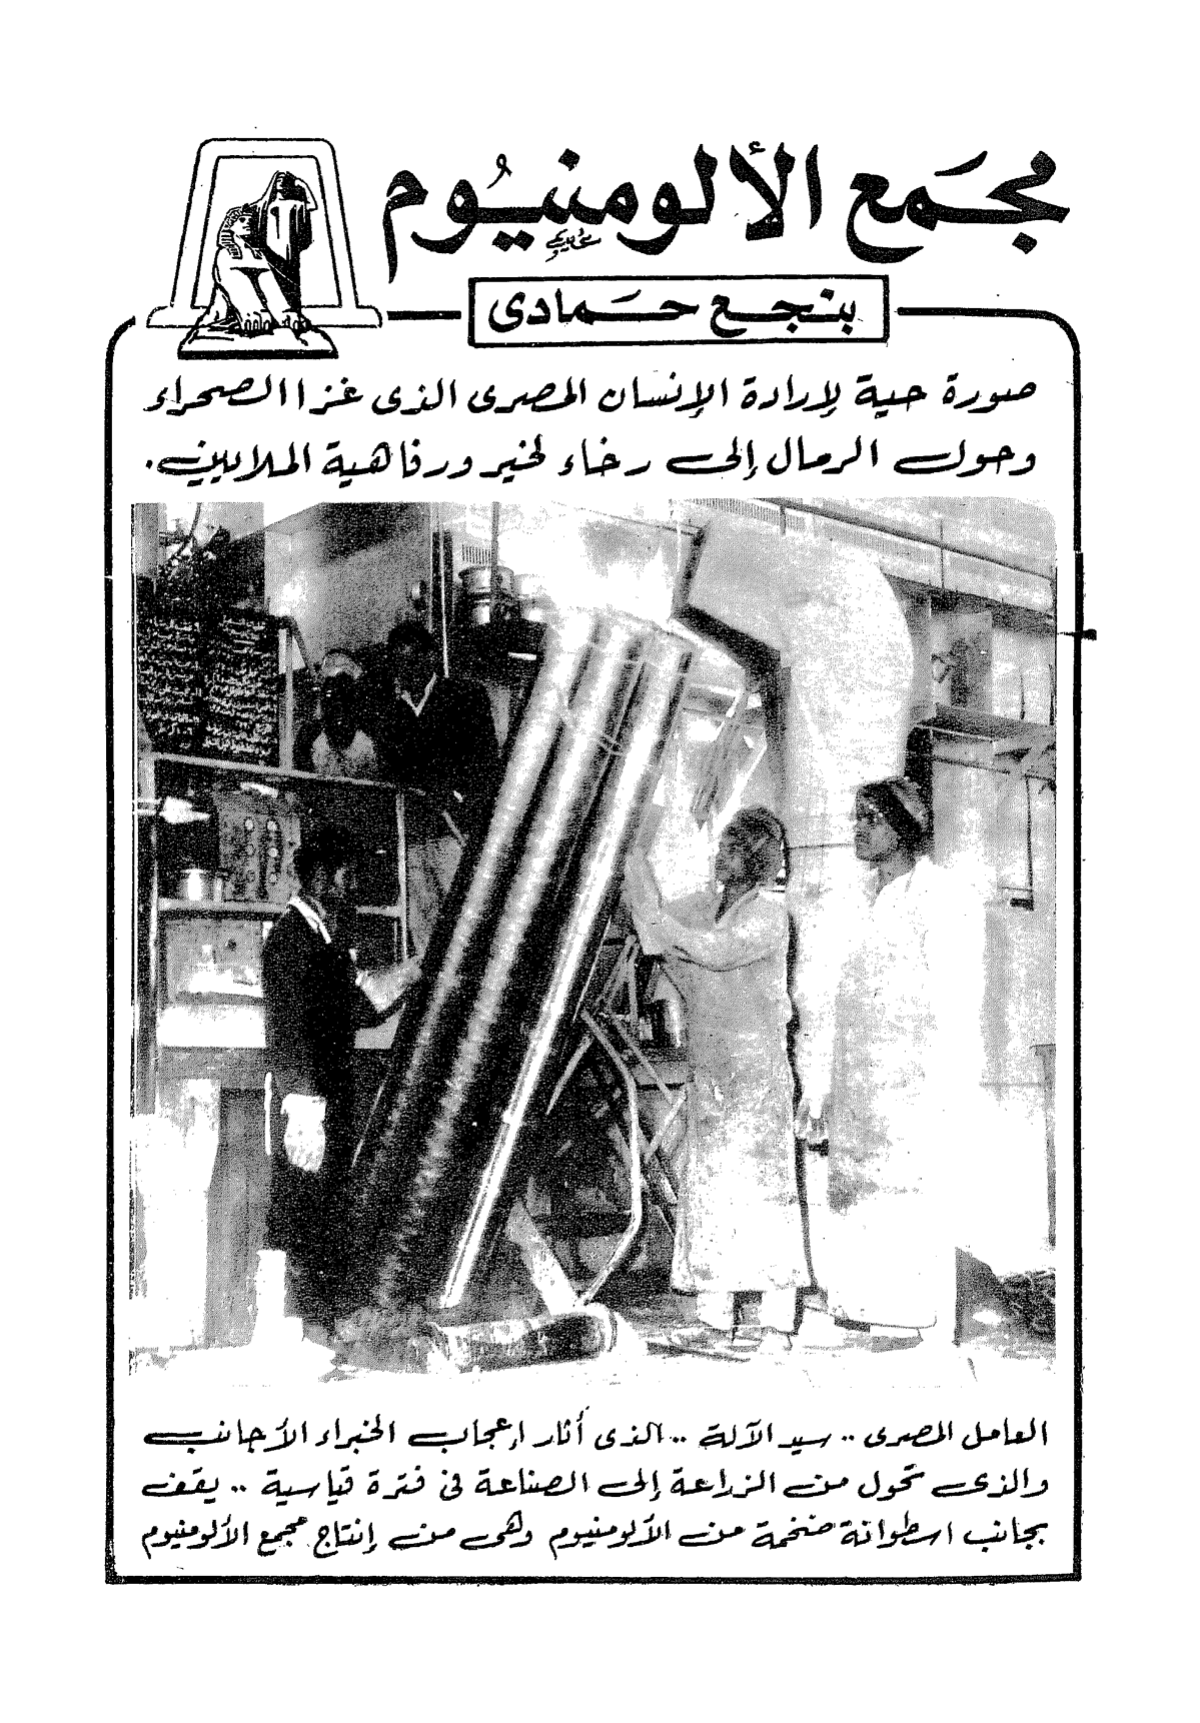 مجمع الألومنيوم
بنجع حمادى
صورة حية لإرادة الإنسان المصرى الذى غزا الصحراء
وحول الرمال إلى رخاء لخير ورفاهية الملايين.
العامل المصرى .. سيد الآلة .. الذى أثار إعجاب الخبراء الأجانب
والذى تحول من الزراعة إلى الصناعة فى فترة قياسية .. يقف
بجانب اسطوانة ضخمة من الألومنيوم وهى من إنتاج مجمع الألومنيوم